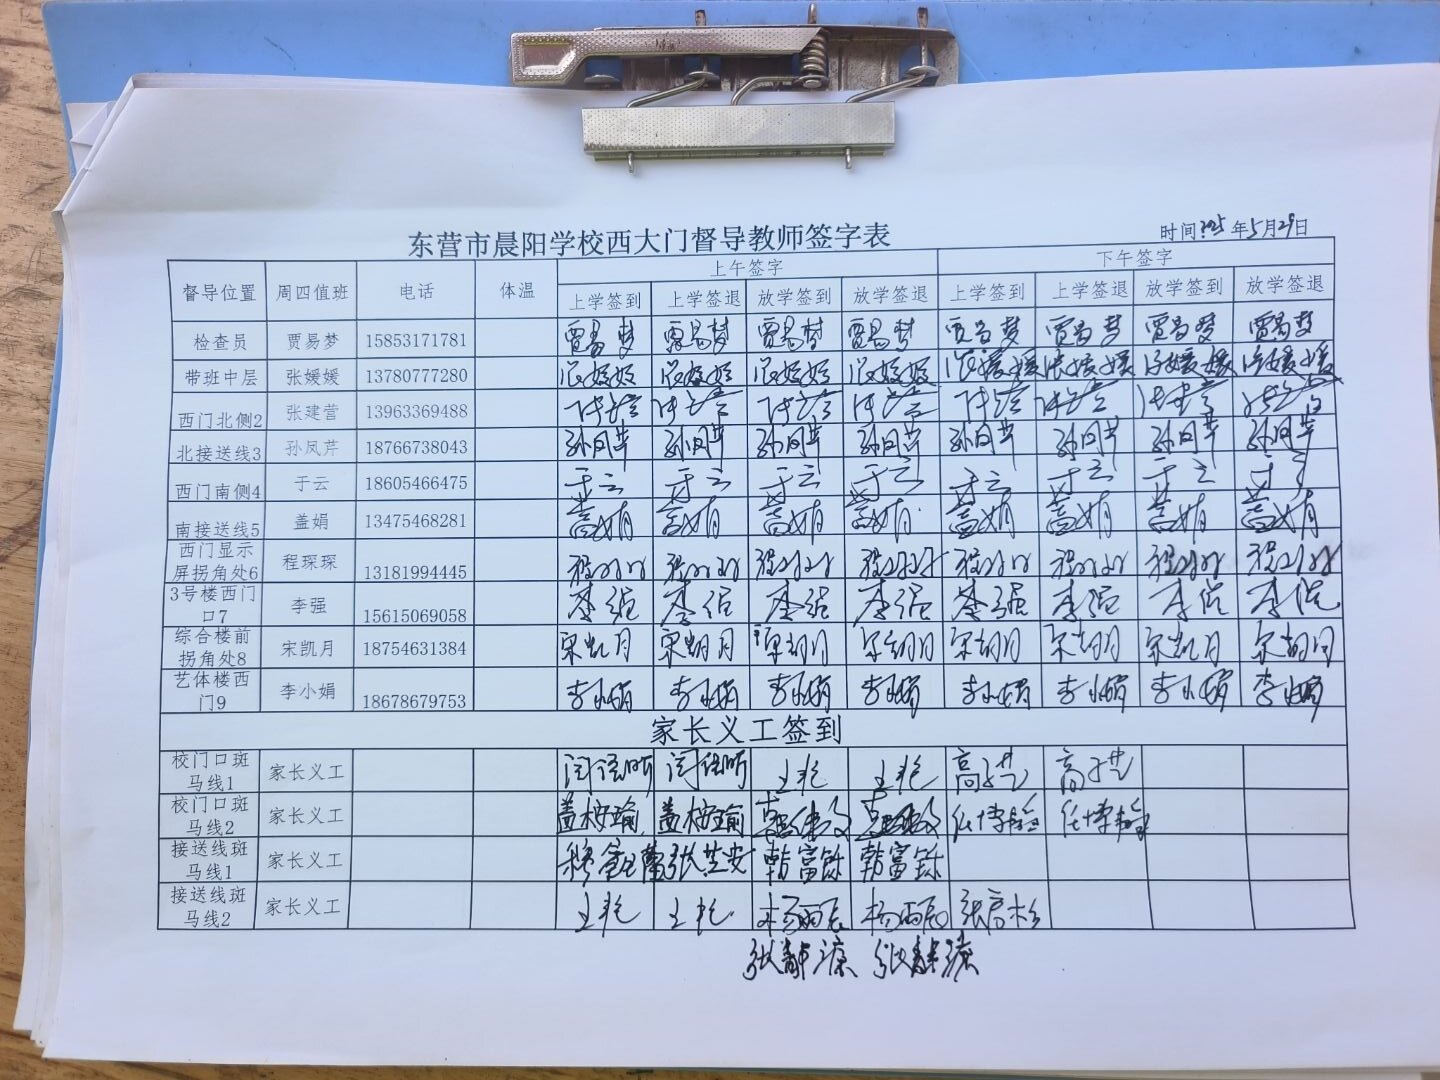 东营市晨阳学校西大门督导教师签字表
时间2025年5月29日
督导位置 周四值班 电话 体温 上午签字 下午签字
上学签到 上学签退 放学签到 放学签退 上学签到 上学签退 放学签到 放学签退
检查员 贾易梦 15853171781 贾易梦 贾易梦 贾易梦 贾易梦 贾易梦 贾易梦 贾易梦 贾易梦
带班中层 张媛媛 13780777280 张媛媛 张媛媛 张媛媛 张媛媛 张媛媛 张媛媛 张媛媛 张媛媛
西门北侧2 张建营 13963369488
北接送线3 孙凤芹 18766738043 孙凤芹 孙凤芹 孙凤芹 孙凤芹 孙凤芹 孙凤芹 孙凤芹 孙凤芹
西门南侧4 于云 18605466475 于云 于云 于云 于云 于云 于云 于云 于云
南接送线5 盖娟 13475468281 盖娟 盖娟 盖娟 盖娟 盖娟 盖娟 盖娟 盖娟
西门显示屏拐角处6 程琛琛 13181994445 程琛琛 程琛琛 程琛琛 程琛琛 程琛琛 程琛琛 程琛琛 程琛琛
3号楼西门口7 李强 15615069058 李强 李强 李强 李强 李强 李强 李强 李强
综合楼前拐角处8 宋凯月 18754631384 宋凯月 宋凯月 宋凯月 宋凯月 宋凯月 宋凯月 宋凯月 宋凯月
艺体楼西门9 李小娟 18678679753 李小娟 李小娟 李小娟 李小娟 李小娟 李小娟 李小娟 李小娟
家长义工签到
校门口斑马线1 家长义工 王艳 王艳
校门口斑马线2 家长义工 盖梓瑜 盖梓瑜
接送线斑马线1 家长义工 张芝安 韩富铄 韩富铄
接送线斑马线2 家长义工 王艳 王艳 杨雨辰 杨雨辰